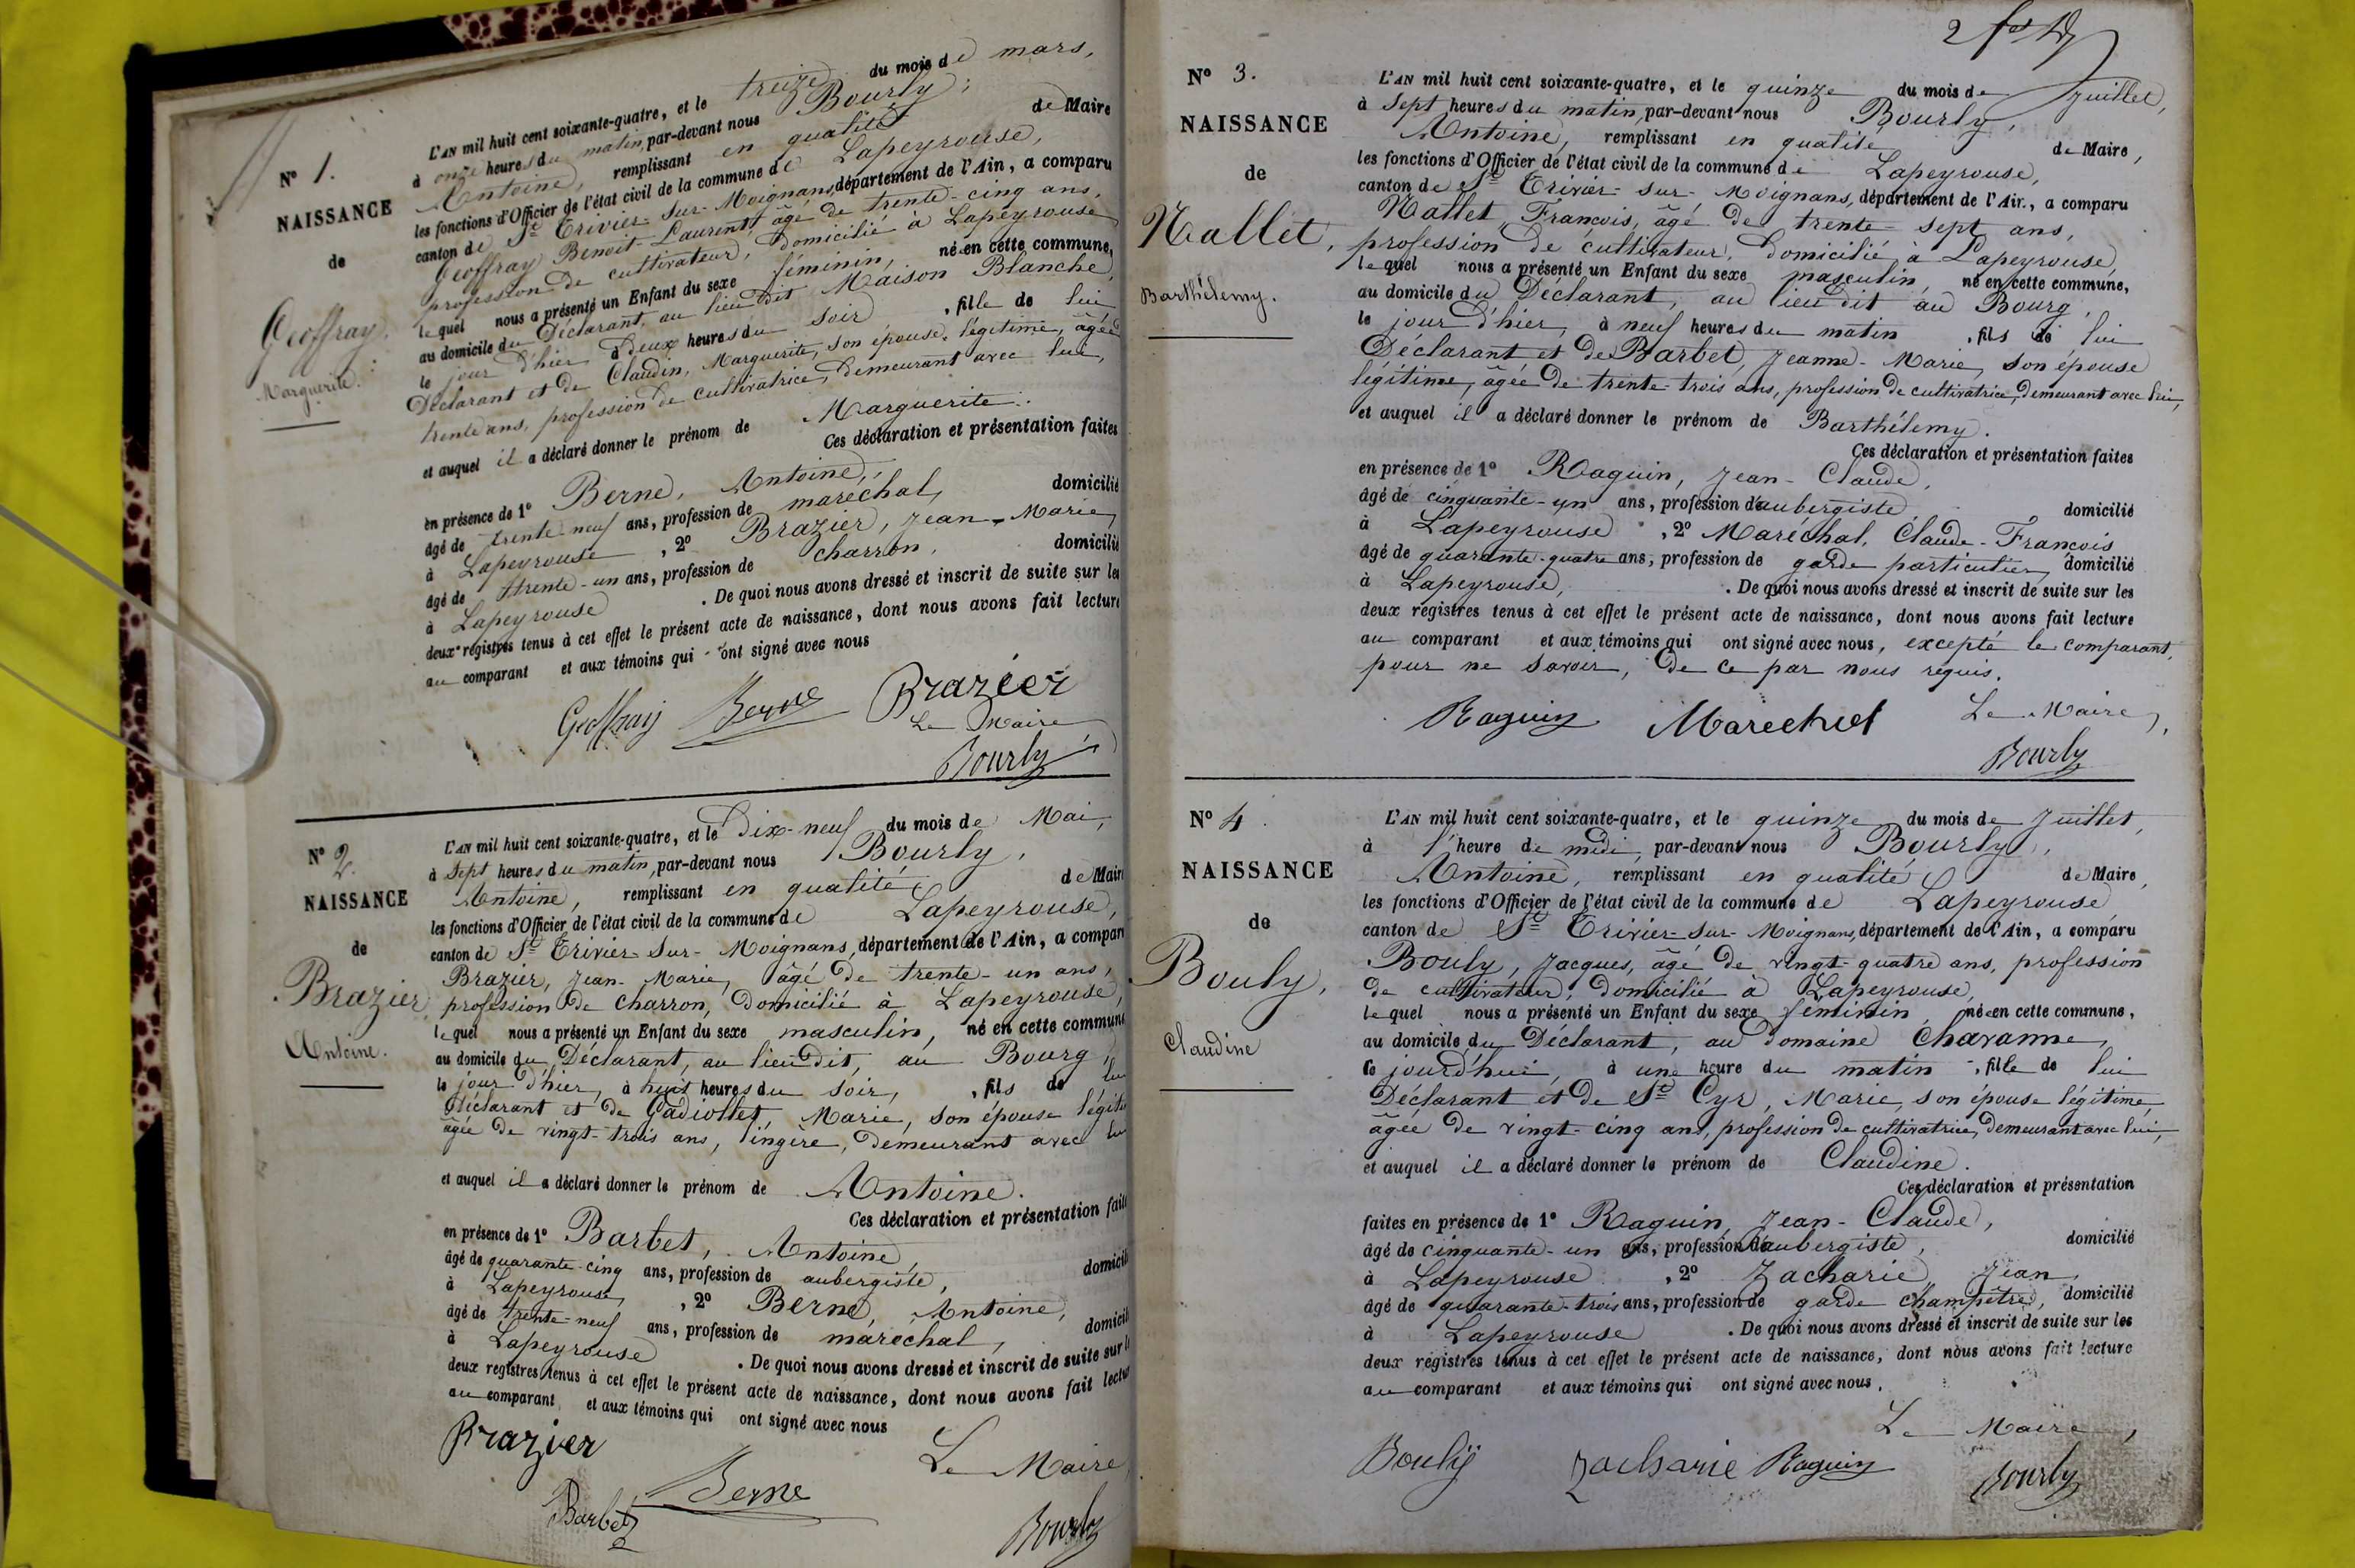 N° 1.
NAISSANCE
de
Geoffray.
Marguerite.
L'AN mil huit cent soixante-quatre, et le treize du mois de mars,
à onze heures du matin, par-devant nous Bourly,
Antoine, remplissant en qualité de Maire
les fonctions d'Officier de l'état civil de la commune de Lapeyrouse,
canton de St Trivier-sur-Moignans, département de l'Ain, a comparu
Geoffray Benoit-Laurent, âgé de trente-cinq ans,
profession de cultivateur, domicilié à Lapeyrouse
lequel nous a présenté un Enfant du sexe féminin, né en cette commune,
au domicile du Déclarant, au lieu dit Maison Blanche,
le jour d'hier à deux heures du soir, fille de lui
Déclarant et de Claudin, Marguerite, son épouse légitime, âgée
trente ans, profession de cultivatrice, demeurant avec lui,
et auquel il a déclaré donner le prénom de Marguerite.
Ces déclaration et présentation faites
en présence de 1° Berne, Antoine,
âgé de trente-neuf ans, profession de maréchal, domicilié
à Lapeyrouse, 2° Brazier, Jean-Marie,
âgé de trente-un ans, profession de charron, domicilié
à Lapeyrouse. De quoi nous avons dressé et inscrit de suite sur les
deux registres tenus à cet effet le présent acte de naissance, dont nous avons fait lecture
au comparant et aux témoins qui ont signé avec nous
Geoffray Berne Brazier
Le Maire
Bourly
N° 2.
NAISSANCE
de
Brazier
Antoine.
L'AN mil huit cent soixante-quatre, et le Dix-neuf du mois de Mai,
à sept heures du matin, par-devant nous Bourly,
Antoine, remplissant en qualité de Mair
les fonctions d'Officier de l'état civil de la commune de Lapeyrouse,
canton de St Trivier-Sur-Moignans, département de l'Ain, a compar
Brazier, Jean-Marie, âgé de trente-un ans,
profession de charron, domicilié à Lapeyrouse,
lequel nous a présenté un Enfant du sexe masculin, né en cette commune
au domicile du Déclarant, au lieu dit, au Bourg,
le jour d'hier, à huit heures du soir, fils de lui
Déclarant et de Gadiollet, Marie, son épouse légiti
âgée de vingt-trois ans, lingère, demeurant avec lui
et auquel il a déclaré donner le prénom de Antoine.
Ces déclaration et présentation faite
en présence de 1° Barbet, Antoine,
âgé de quarante-cinq ans, profession de aubergiste, domicili
à Lapeyrouse, 2° Berne, Antoine,
âgé de trente-neuf ans, profession de maréchal, domicili
à Lapeyrouse. De quoi nous avons dressé et inscrit de suite sur l
deux registres tenus à cet effet le présent acte de naissance, dont nous avons fait lectur
au comparant et aux témoins qui ont signé avec nous
Brazier
Le Maire
Barbet Berne
Bourly
2
N° 3.
NAISSANCE
de
Nallet,
Barthélemy.
L'AN mil huit cent soixante-quatre, et le quinze du mois de Juillet,
à sept heures du matin, par-devant nous Bourly,
Antoine, remplissant en qualité de Maire,
les fonctions d'Officier de l'état civil de la commune de Lapeyrouse,
canton de St Trivier-sur-Moignans, département de l'Air., a comparu
Nallet, François, âgé de trente-sept ans,
profession de cultivateur, domicilié à Lapeyrouse,
lequel nous a présenté un Enfant du sexe masculin, né en cette commune,
au domicile du Déclarant, au lieu dit au Bourg,
le jour d'hier, à neuf heures du matin, fils de lui
Déclarant et de Barbet, Jeanne-Marie, son épouse
légitime, âgée de trente-trois ans, profession de cultivatrice, demeurant avec lui,
et auquel il a déclaré donner le prénom de Barthélemy.
Ces déclaration et présentation faites
en présence de 1° Raguin, Jean-Claude,
âgé de cinquante-un ans, profession d'aubergiste domicilié
à Lapeyrouse, 2° Maréchal, Claude-François
âgé de quarante-quatre ans, profession de garde particulier, domicilié
à Lapeyrouse,. De quoi nous avons dressé et inscrit de suite sur les
deux registres tenus à cet effet le présent acte de naissance, dont nous avons fait lecture
au comparant et aux témoins qui ont signé avec nous, excepté le comparant,
pour ne savoir, de ce par nous requis.
Raguin Marechal Le Maire,
Bourly
N° 4.
NAISSANCE
de
Bouly,
Claudine
L'AN mil huit cent soixante-quatre, et le quinze du mois de Juillet,
à l'heure de midi, par-devant nous Bourly,
Antoine, remplissant en qualité de Maire,
les fonctions d'Officier de l'état civil de la commune de Lapeyrouse
canton de St Trivier-sur-Moignans, département de l'Ain, a comparu
Bouly, Jacques, âgé de vingt-quatre ans, profession
de cultivateur, domicilié à Lapeyrouse,
lequel nous a présenté un Enfant du sexe féminin, né en cette commune,
au domicile du Déclarant, au domaine Chavanne,
ce jourd'hui, à une heure du matin, fille de lui
Déclarant et de St Cyr, Marie, son épouse légitime,
âgée de vingt-cinq ans, profession de cultivatrice, demeurant avec lui,
et auquel il a déclaré donner le prénom de Claudine.
Ces déclaration et présentation
faites en présence de 1° Raguin, Jean-Claude,
âgé de cinquante-un ans, profession d'aubergiste, domicilié
à Lapeyrouse, 2° Zacharie, Jean,
âgé de quarante-trois ans, profession de garde champêtre, domicilié
à Lapeyrouse. De quoi nous avons dressé et inscrit de suite sur les
deux registres tenus à cet effet le présent acte de naissance, dont nous avons fait lecture
au comparant et aux témoins qui ont signé avec nous.
Le Maire,
Bouly Zacharie Raguin Bourly